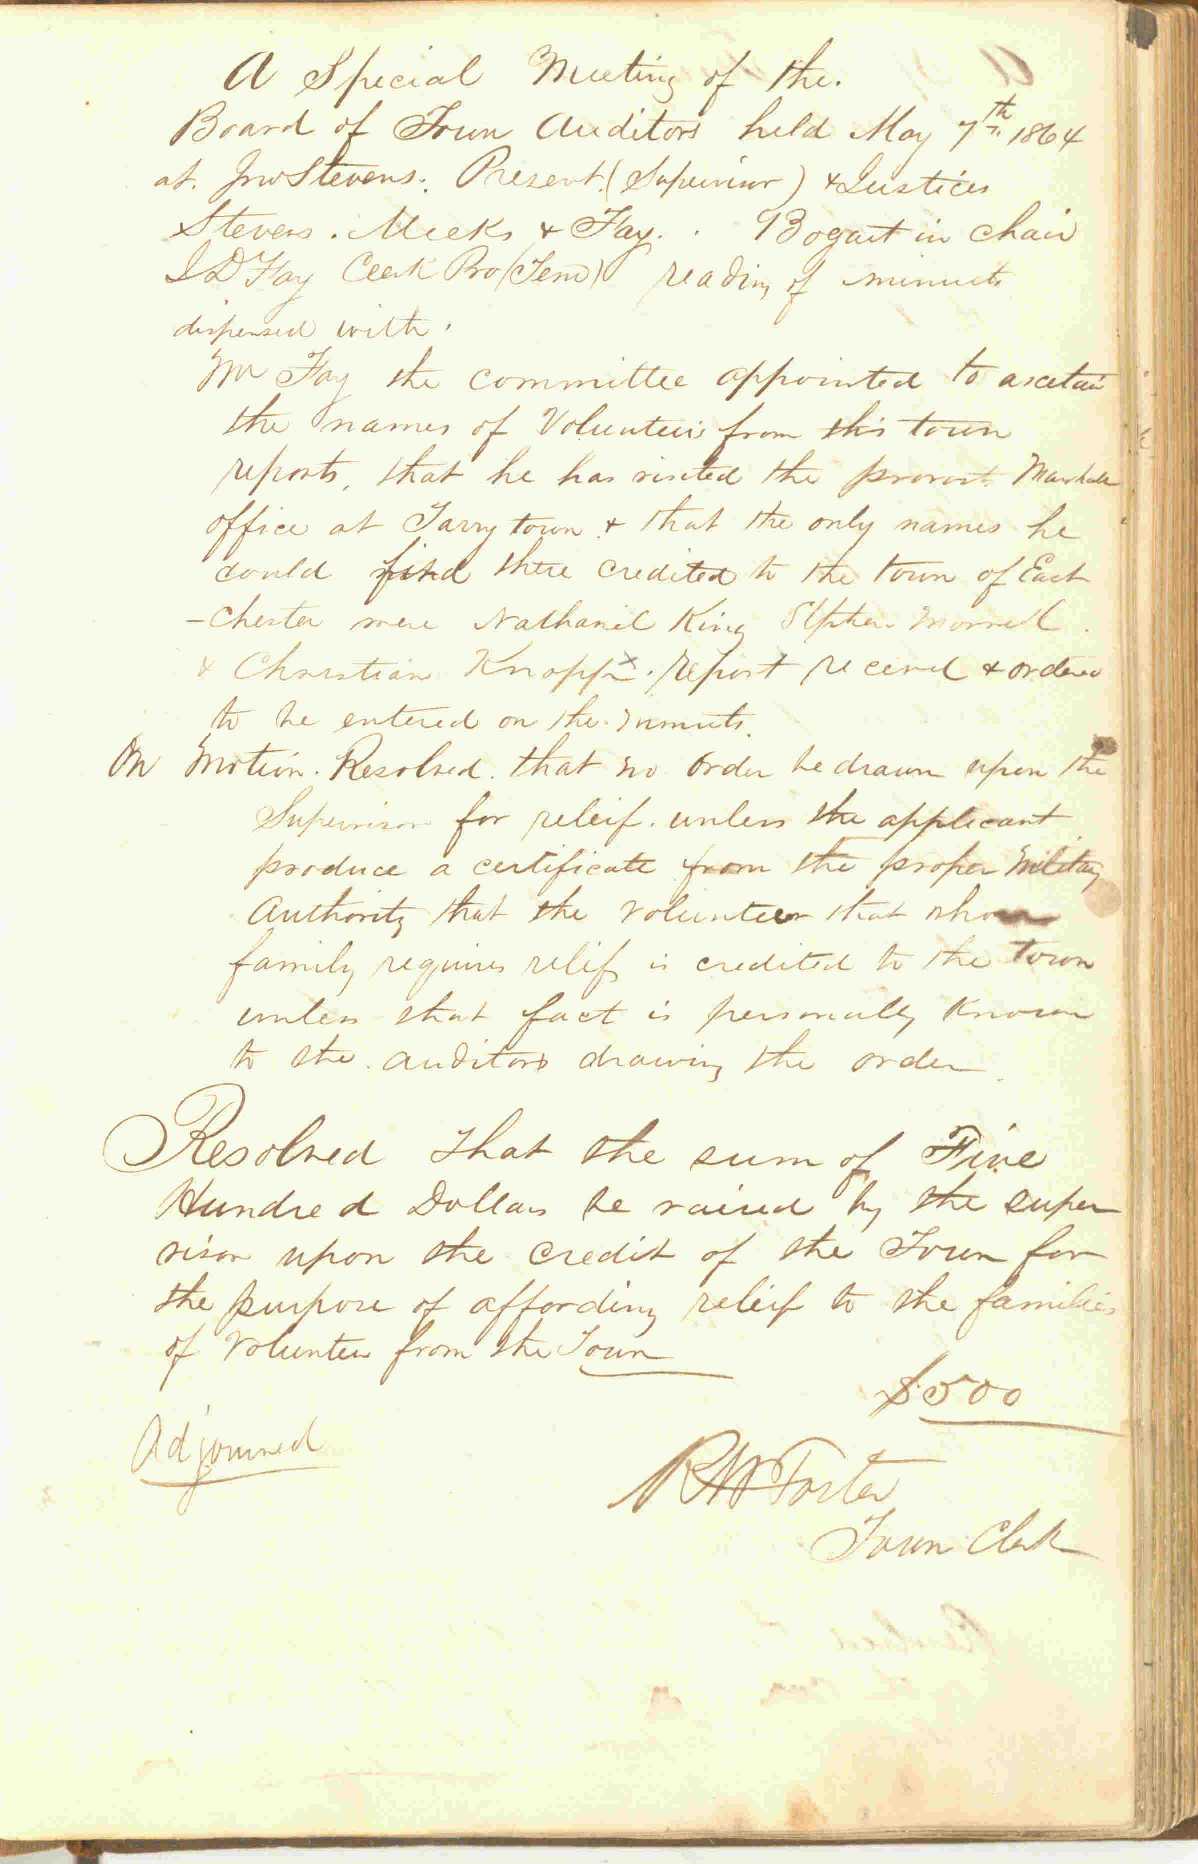 A Special Meeting of the.
Board of Town Auditors held May 7th 1864
at. Jno Stevens. Present. (Supervisor) & Justices
Stevens. Meeks & Fay. . Bogart in chair
J D Fay Clerk Pro (Tem) reading of minuets
dispensed with.
Mr Fay the committee appointed to ascetain
the names of Volunteers from this town
reports, that he has visited the provost Marshals
office at Tarrytown & that the only names he
could find there credited to the town of East
-chester were Nathaniel King Stphen Morrell
& Christian Knapp x. report received & ordered
to be entered on the minuets.
On Motion. Resolved. that no order be drawn upon the
Supervisor for releif. unless the applicant
produce a certificate from the proper Military
Authority that the volunteer that whose
family requires relief is credited to the town
unless that fact is personally known
to the auditors drawing the order.
Resolved that the sum of Five
Hundred Dollars be raised by the super
visor upon the credit of the Town for
the purpose of affording releif to the families
of Volunteers from the Town
$500
Adjourned
R W Foster
Town Clerk